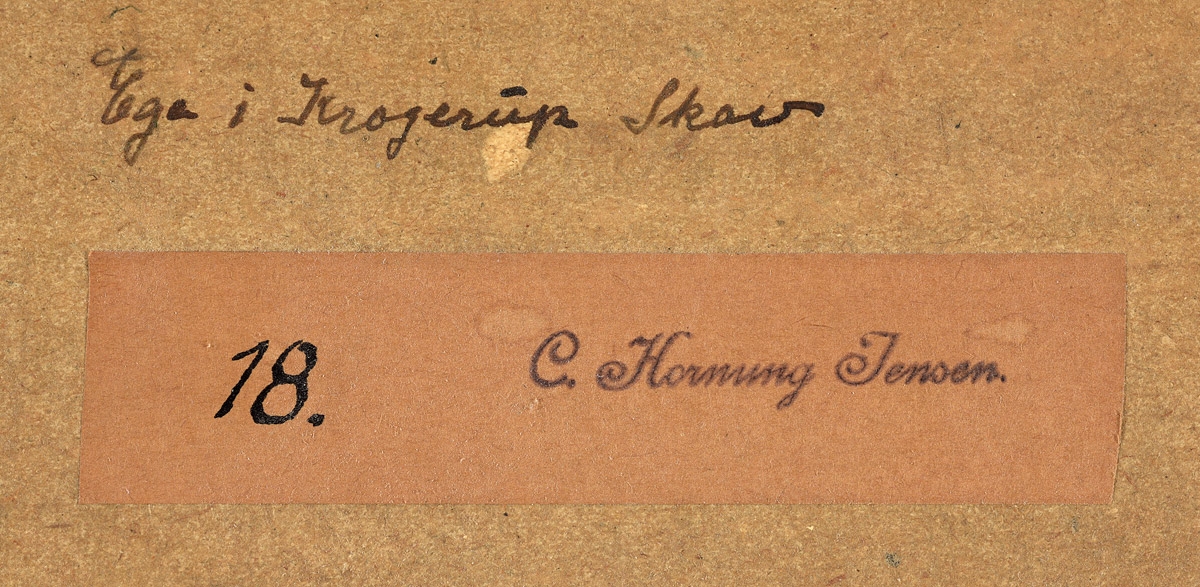 Ege i Krogerup Skov
18. C. Hornung Jensen.